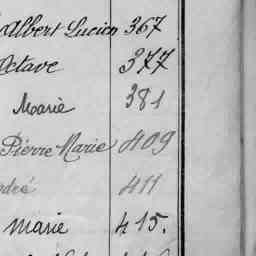 Albert Lucien 367
Octave 377
Marie 381
Pierre Marie 409
André 411
Marie 415.